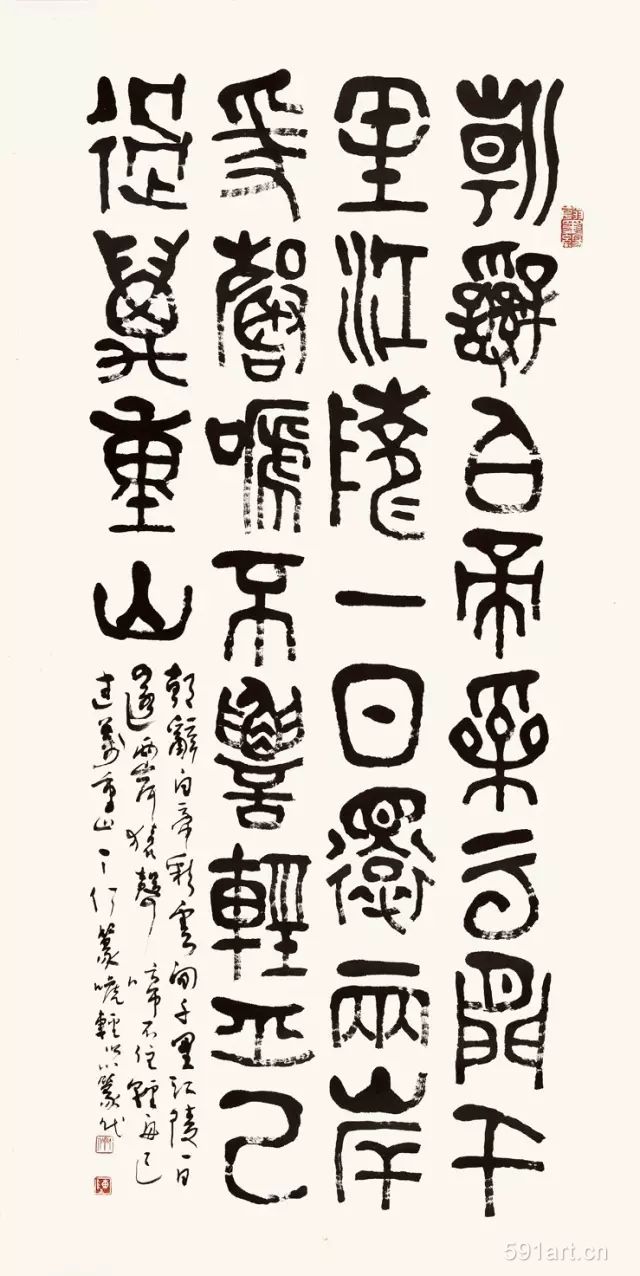 朝辭白帝采云間千
里江陵一日還兩岸
爰聲嗁不輕舟已
過萬重山
朝辭白帝彩雲間千里江陵一日
還兩岸猿聲啼不住輕舟已
過萬重山 篆嗁輕以篆代
591art.cn